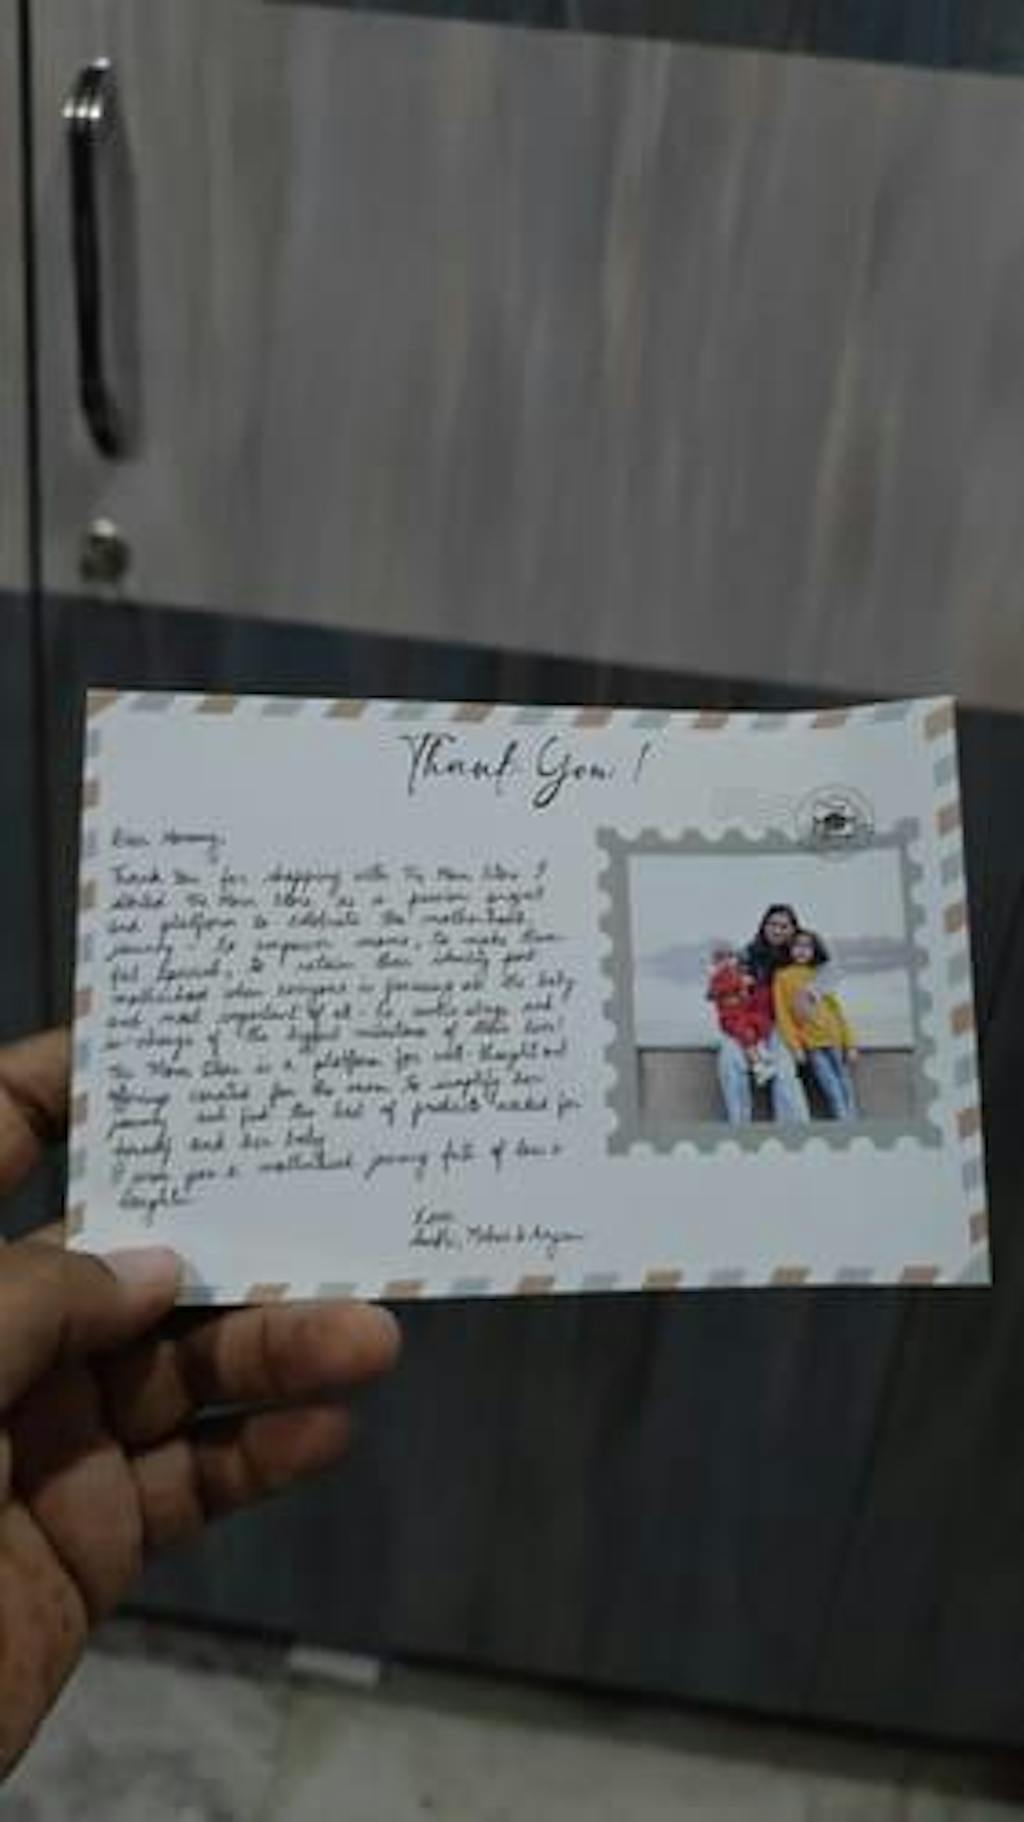 Thank You!
Dear Mommy,
Thank You for shopping with The Mom Store! I
started The Mom Store as a passion project
and platform to celebrate the motherhood
journey - to empower moms, to make them
feel special, to retain their identity post
motherhood when everyone is focusing on the baby
and most important of all - to
in-charge of the biggest milestone of their lives!
The Mom Store is a platform for well-thought out
offerings curated for the mom to simplify her
journey and find the best of products needed for
herself and her baby
I wish you a motherhood journey full of love &
laughter
Love